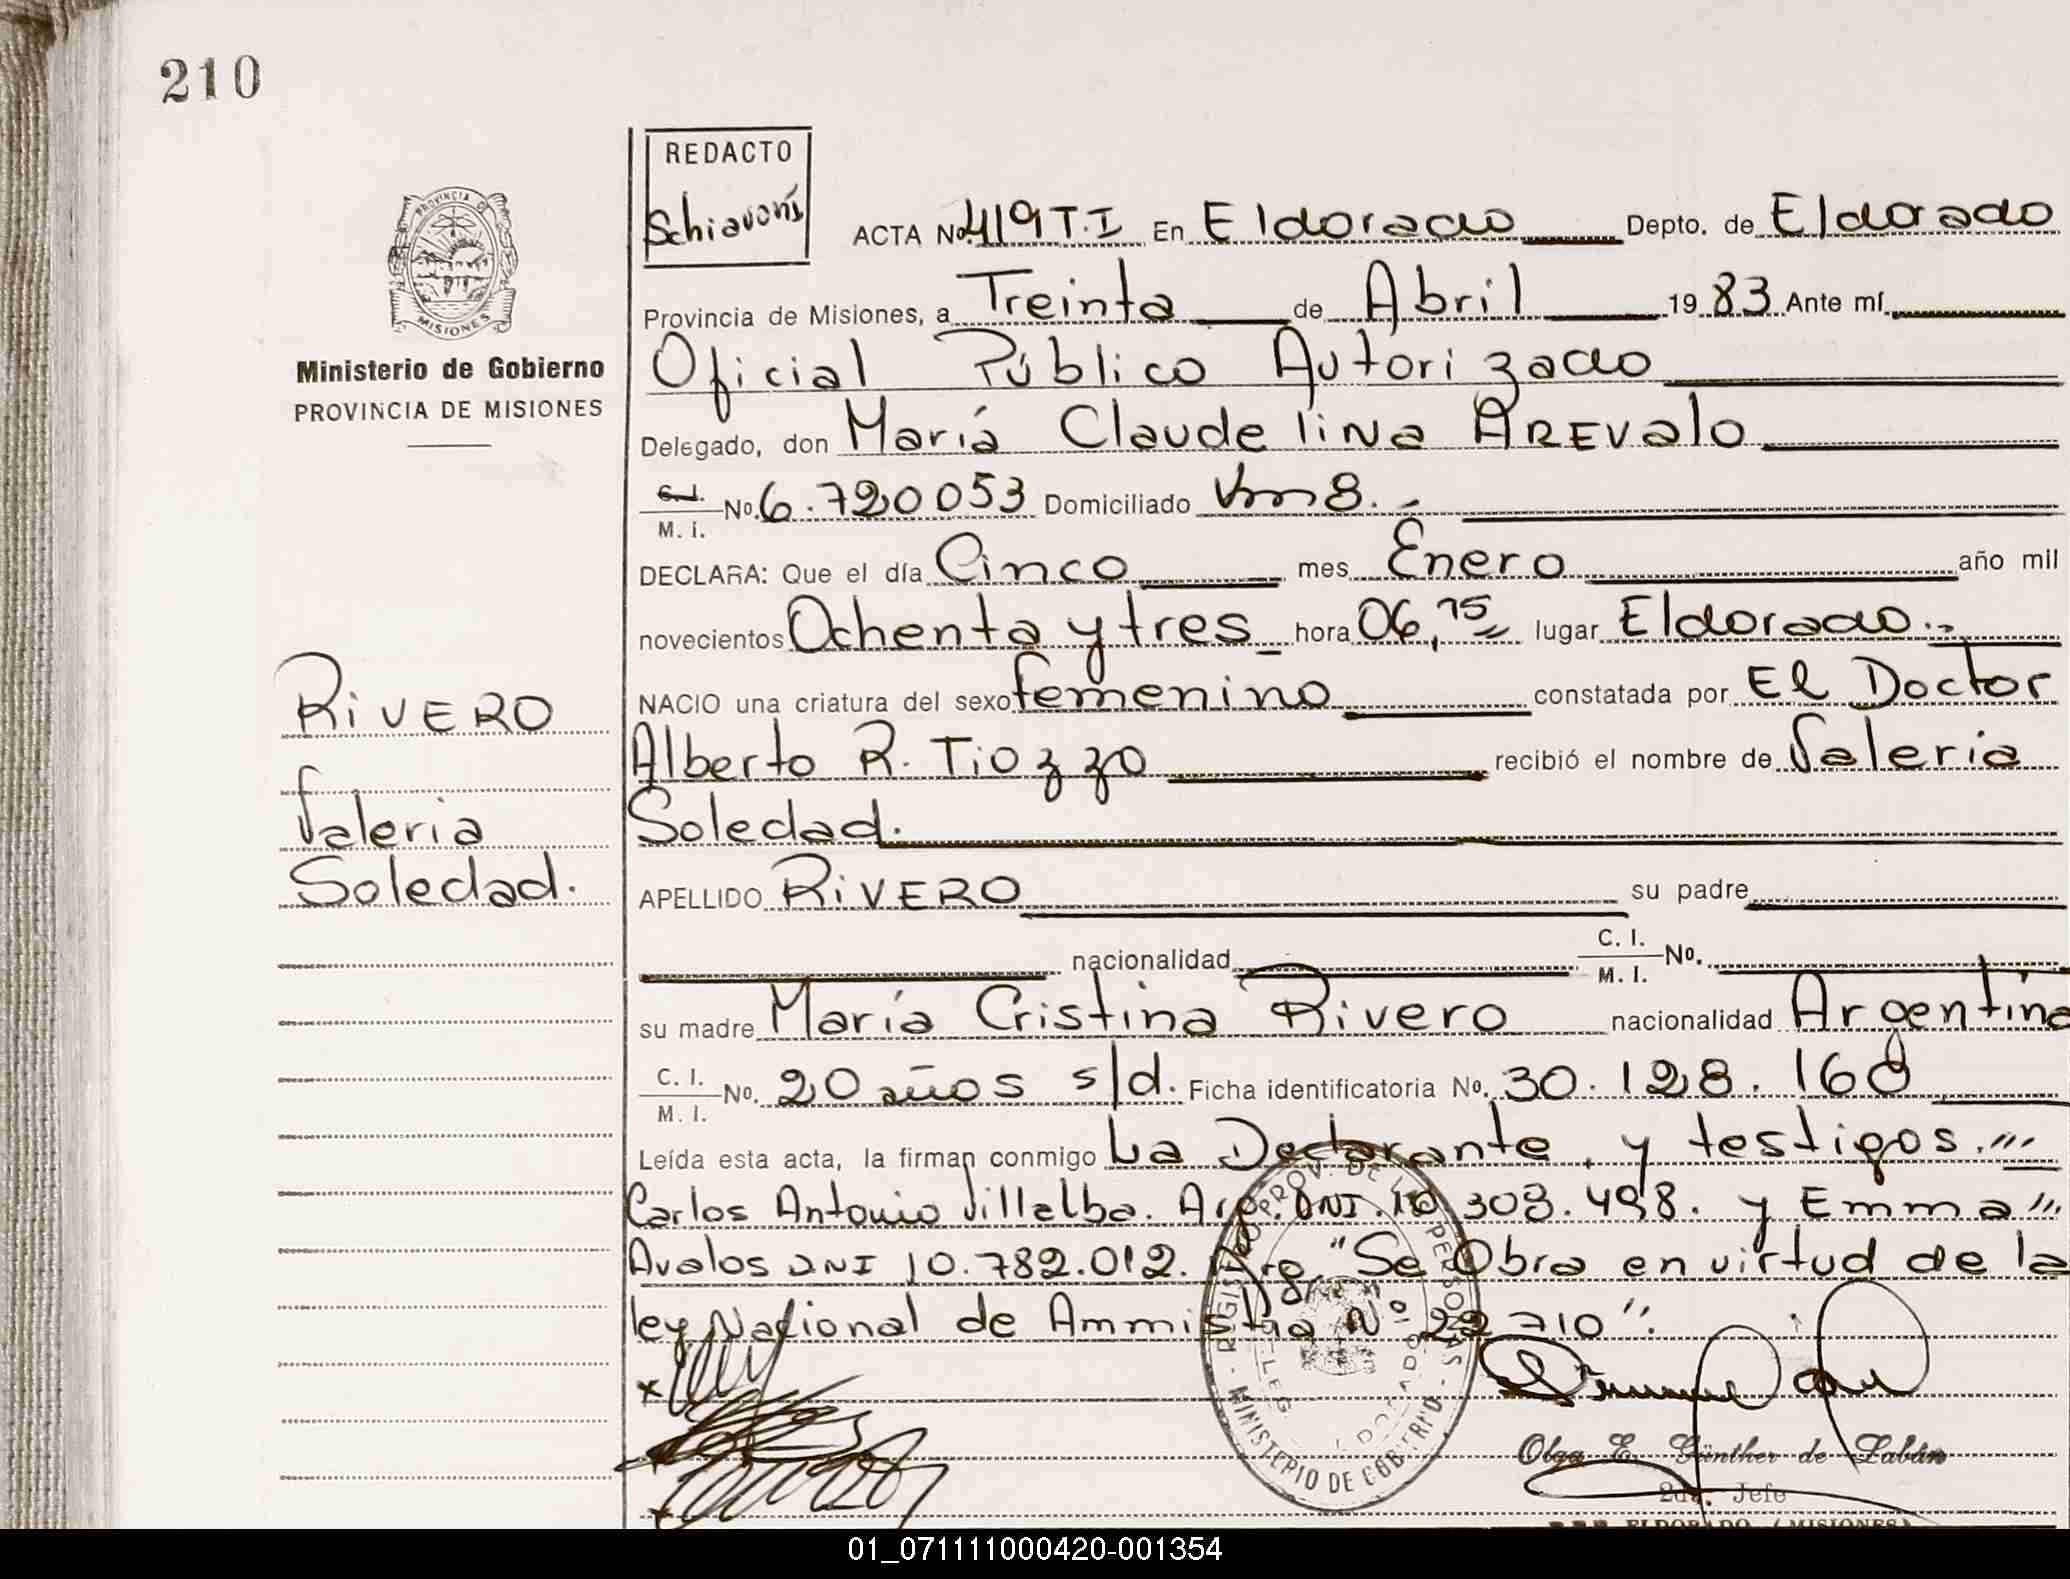 210
REDACTO
Schiavoni
ACTA No. 419 T.I En Eldorado Depto. de Eldorado
PROVINCIA DE
MISIONES
Provincia de Misiones, a Treinta de Abril 1983 Ante mí
Ministerio de Gobierno
PROVINCIA DE MISIONES
Oficial Público Autorizado
Delegado, don María Claudelina AREValo
C.I. M. I. No. 6.720053 Domiciliado Km 8.
DECLARA: Que el día Cinco mes Enero año mil
novecientos Ochenta y tres hora 06,15 lugar Eldorado.
NACIO una criatura del sexo femenino constatada por El Doctor
Alberto R. Tiozzo recibió el nombre de Valeria
Soledad.
RIVERO
Valeria
Soledad.
APELLIDO RIVERO su padre
nacionalidad C. I. M. I. No.
su madre María Cristina Rivero nacionalidad Argentina
C. I. M. I. No. 20 años s/d. Ficha identificatoria No. 30.128.168
Leída esta acta, la firman conmigo La Declarante, y testigos.
Carlos Antonio Villalba. Arg. DNI. 10.303.498. y Emma
Avalos DNI 10.782.012. Arg. "Se Obra en virtud de la
ley Nacional de Ammistia Nº 22710".
REGISTRO PROV. DE LAS PERSONAS
MINISTERIO DE GOBIERNO
Olga E. Günther de Labán
2da. Jefe
ELDORADO (MISIONES)
01_071111000420-001354